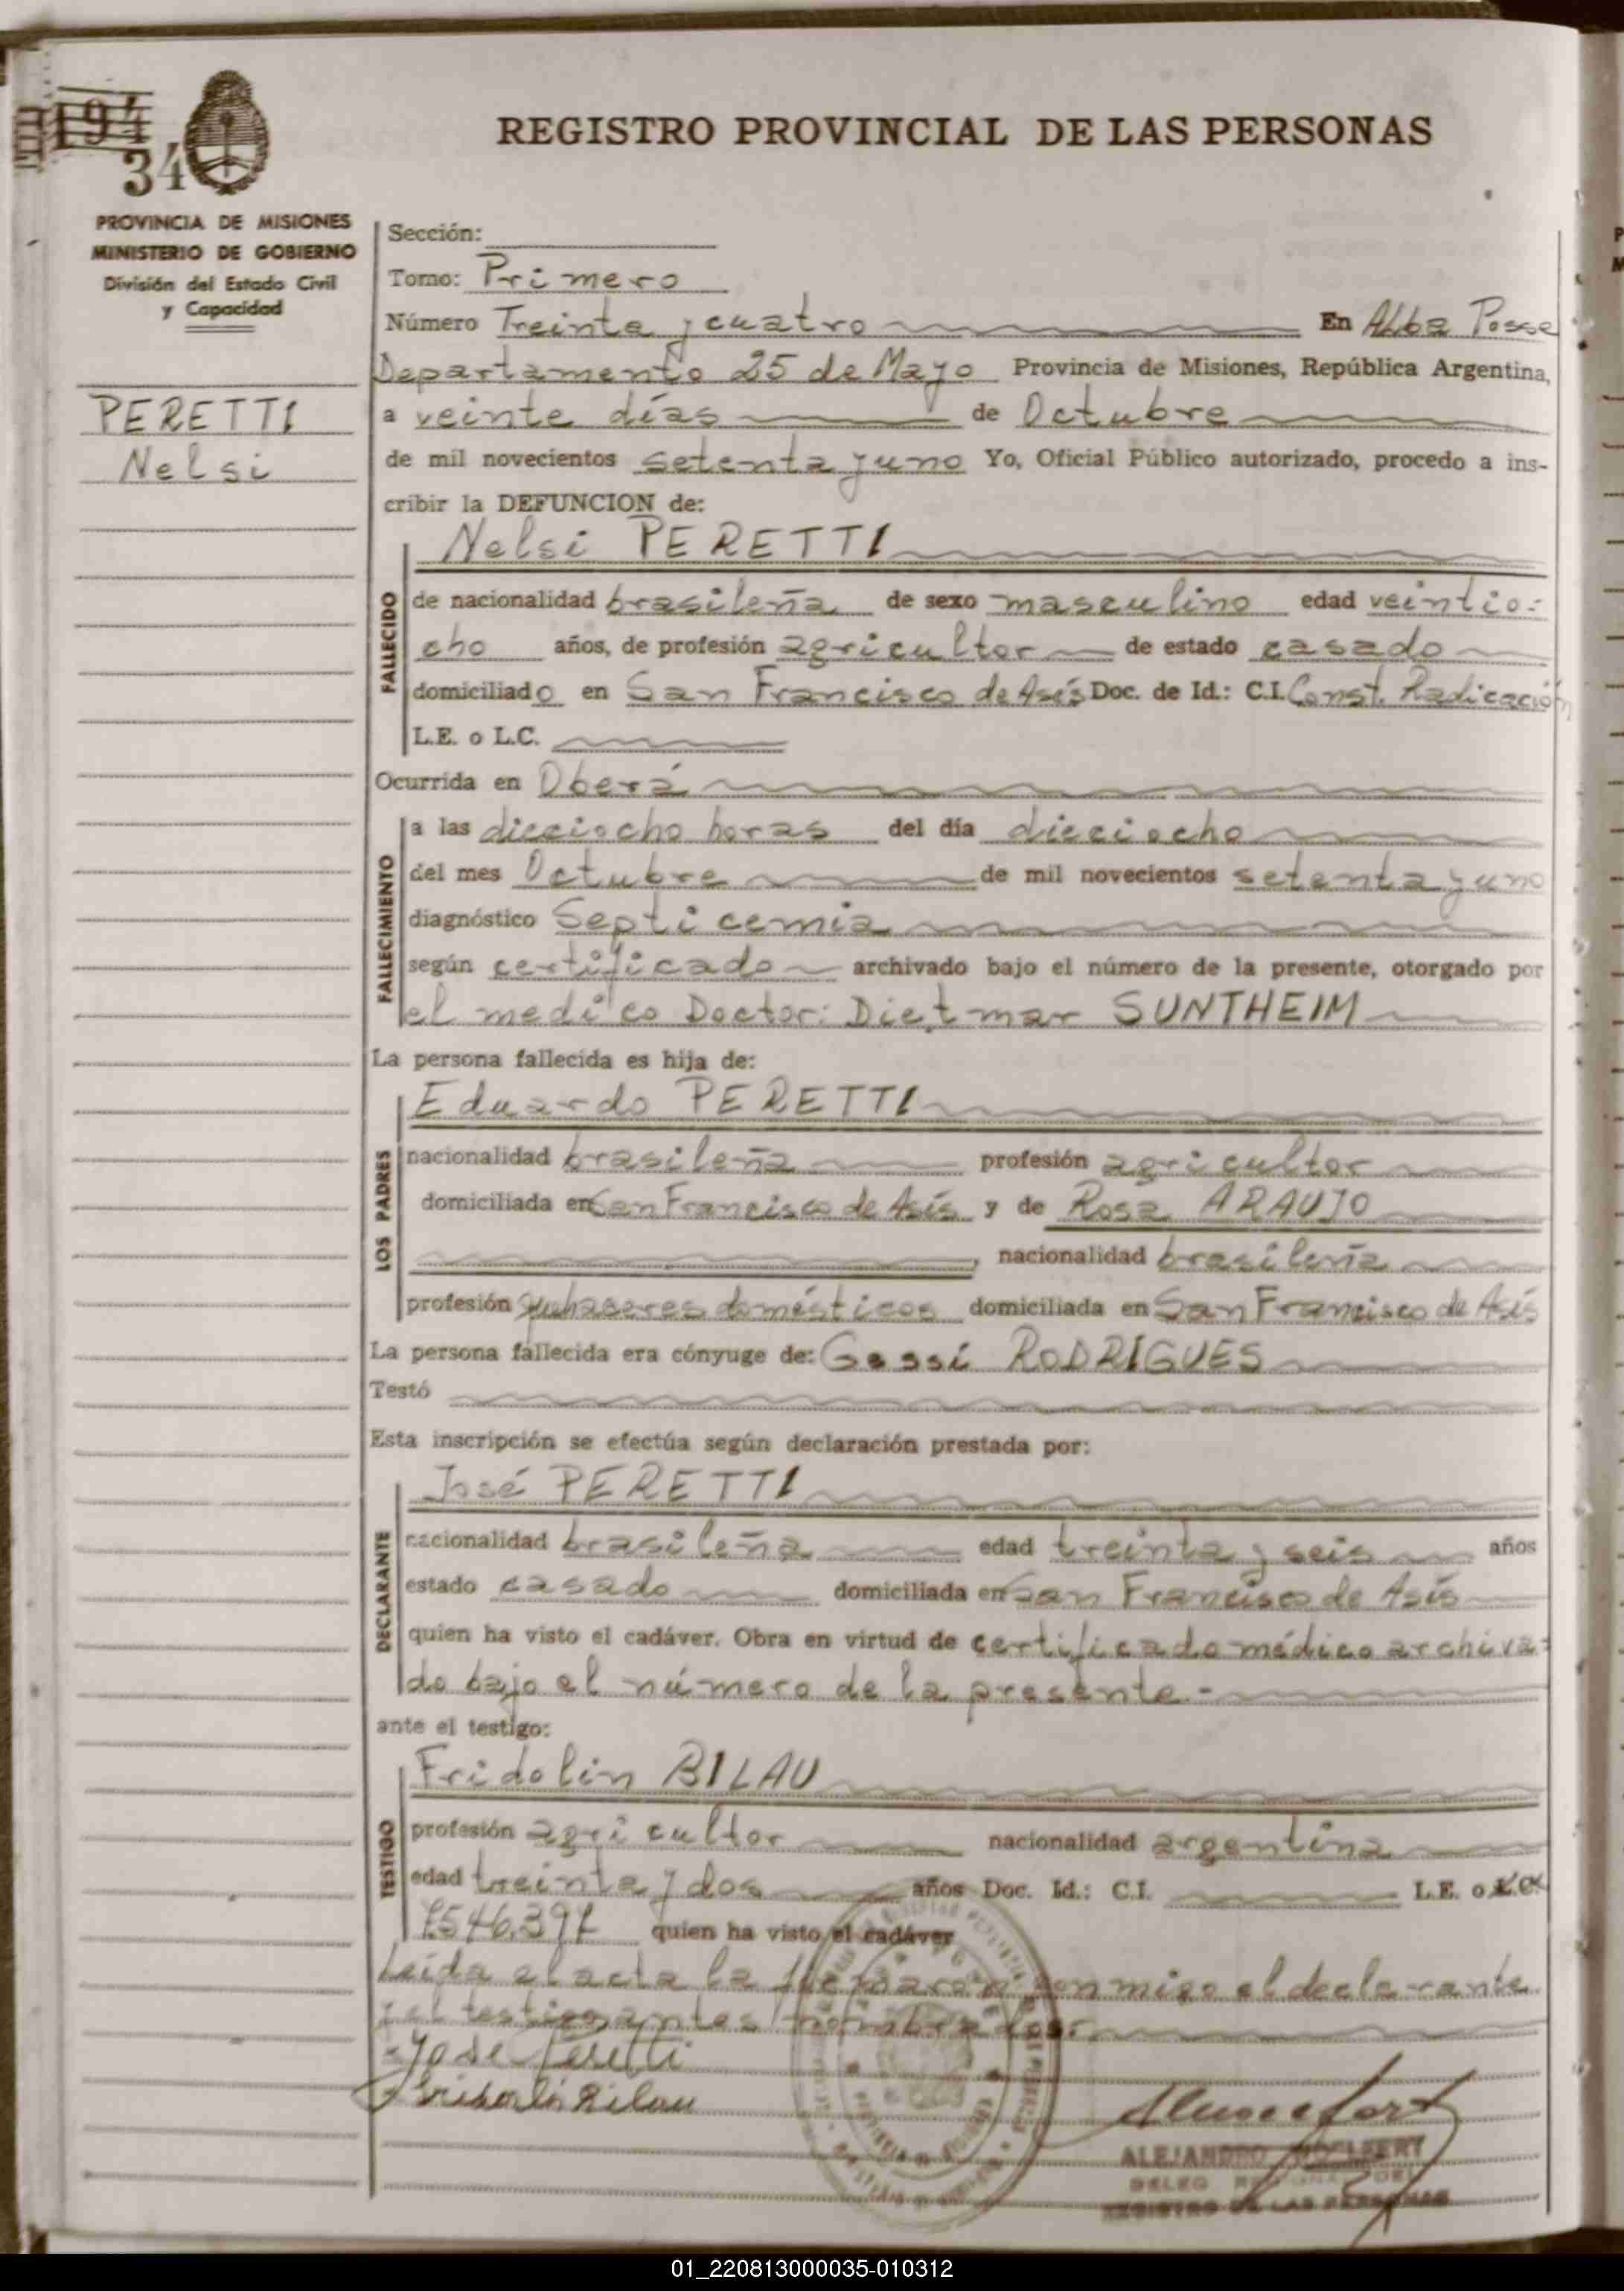 34
REGISTRO PROVINCIAL DE LAS PERSONAS
PROVINCIA DE MISIONES
MINISTERIO DE GOBIERNO
División del Estado Civil
y Capacidad
PERETTI
Nelsi
Sección:
Tomo: Primero
Número Treinta y cuatro En Alba Posse
Departamento 25 de Mayo Provincia de Misiones, República Argentina,
a veinte días de Octubre
de mil novecientos setenta y uno Yo, Oficial Público autorizado, procedo a ins-
cribir la DEFUNCION de:
Nelsi PERETTI
FALLECIDO
de nacionalidad brasileña de sexo masculino edad veintio-
cho años, de profesión agricultor de estado casado
domiciliado en San Francisco de Asís Doc. de Id.: C.I. Const. Radicación
L.E. o L.C.
Ocurrida en Oberá
FALLECIMIENTO
a las dieciocho horas del día dieciocho
del mes Octubre de mil novecientos setenta y uno
diagnóstico Septicemia
según certificado archivado bajo el número de la presente, otorgado por
el medico Doctor: Dietmar SUNTHEIM
La persona fallecida es hija de:
Eduardo PERETTI
LOS PADRES
nacionalidad brasileña profesión agricultor
domiciliada en San Francisco de Asís y de Rosa ARAUJO
, nacionalidad brasileña
profesión quehaseres domésticos domiciliada en San Francisco de Asís
La persona fallecida era cónyuge de: Gessi RODRIGUES
Testó
Esta inscripción se efectúa según declaración prestada por:
José PERETTI
DECLARANTE
nacionalidad brasileña edad treinta y seis años
estado casado domiciliada en San Francisco de Asís
quien ha visto el cadáver. Obra en virtud de certificado médico archiva-
do bajo el número de la presente.-
ante el testigo:
Fridolin BILAU
TESTIGO
profesión agricultor nacionalidad argentina
edad treinta y dos años Doc. Id.: C.I. L.E. o L.C.
7.546.397 quien ha visto el cadáver
Leida el acta la firmaron conmigo el declarante
y el testigo antes nombrados.
José Peretti
Bilau
ALEJANDRO
REGISTRO DE LAS PERSONAS
01_220813000035-010312